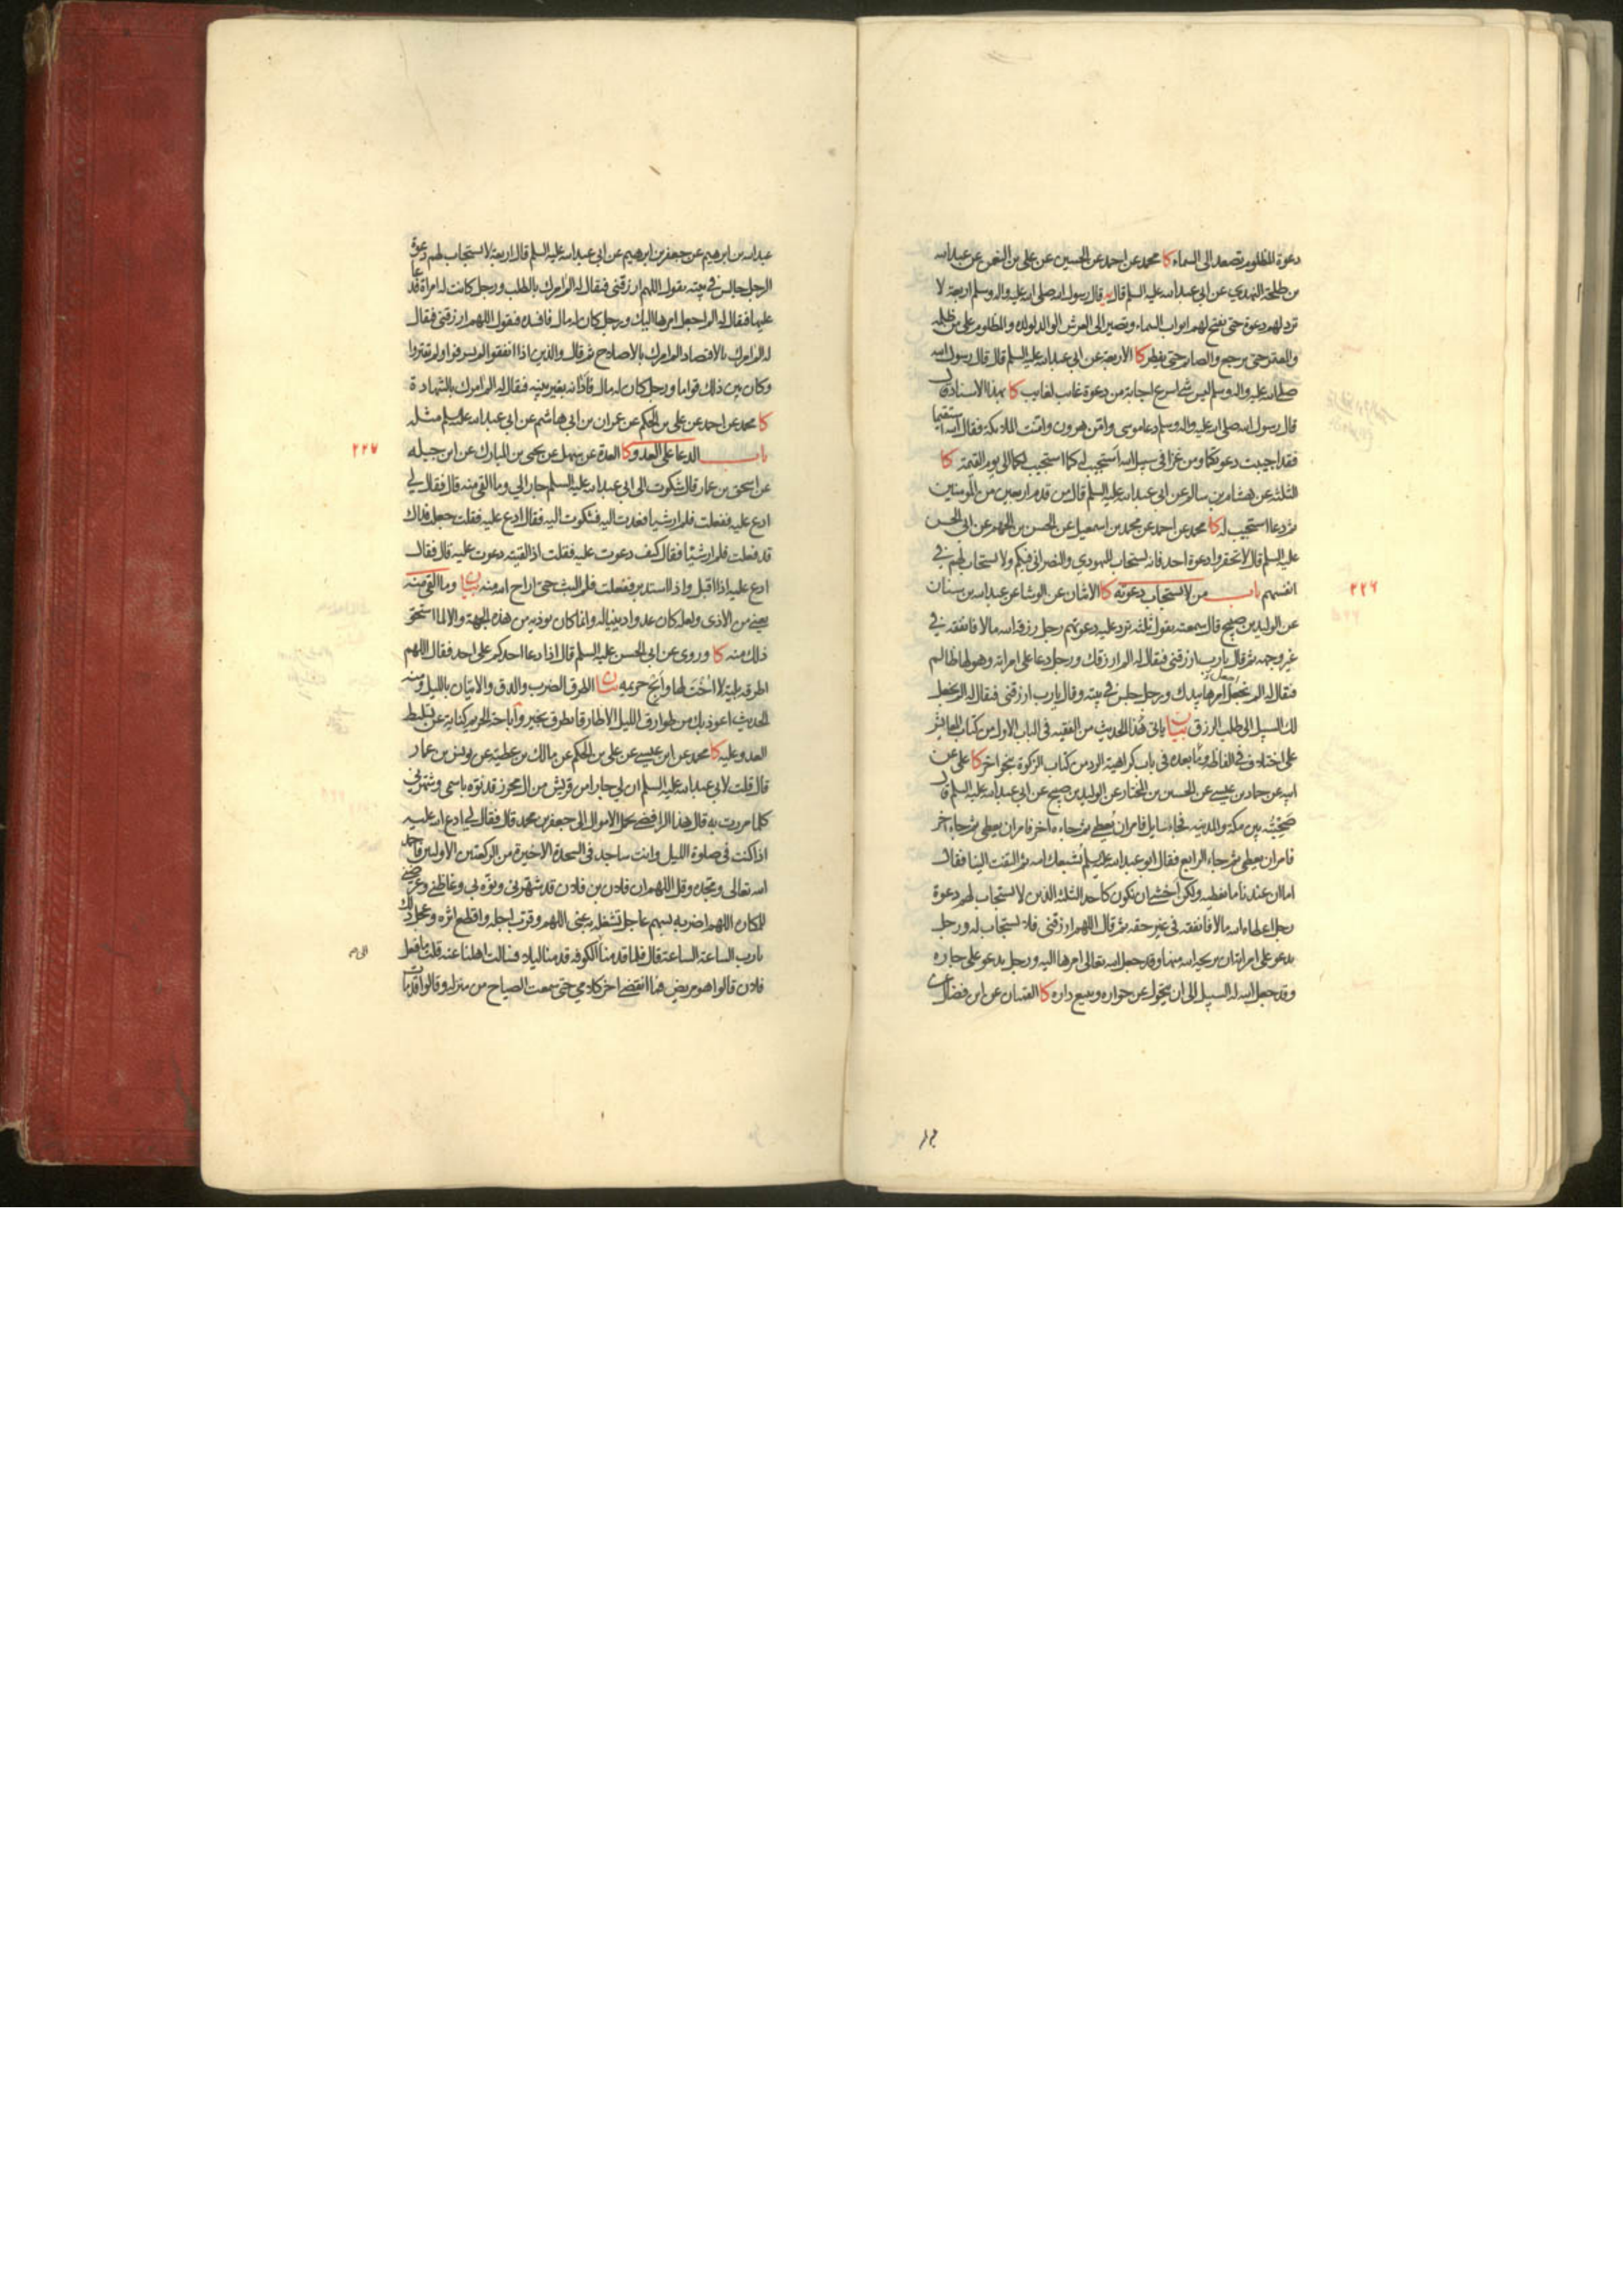 دعوة المظلوم تصعد الى السماء كا محمد عن احمد عن الحسين عن علي بن النعمن عن عبدالله
بن طلحة النهدي عن ابي عبد الله عليه السلم قال قال رسول الله صلى الله عليه واله وسلم اربعة لا
ترد لهم دعوة حتى تفتح لهم ابواب السماء وتصير الى العرش الوالد لولده والمظلوم على من ظلمه
والمعتمر حتى يرجع والصائم حتى يفطر كا الاربعة عن ابي عبدالله عليه السلم قال قال رسول الله
صلى الله عليه واله وسلم ليس شئ اسرع اجابة من دعوة غائب لغايب كا بهذا الاسناد قال
قال رسول الله صلى الله عليه واله وسلم دعا موسى وامن هرون وامنت الملائكة فقال الله استقيما
فقد اجيبت دعوتكما ومن غزا في سبيل الله استجيب له كما استجيب لكما الى يوم القيمة كا
الثلثة عن هشام بن سالم عن ابي عبدالله عليه السلم قال من قدم اربعين من المؤمنين
ثم دعا استجيب له كا محمد عن احمد عن محمد بن اسمعيل عن الحسن بن الجهم عن ابي الحسن
عليه السلم قال لا تحقروا دعوة احد فانه يستجاب لليهودي والنصراني فيكم ولا يستجاب لهم في
انفسهم باب من لا تستجاب دعوته كا الاثنان عن الوشا عن عبدالله بن سنان
٢٢٦
عن الوليد بن صبيح قال سمعته يقول ثلثة ترد عليهم دعوتهم رجل رزقه الله مالا فانفقه في
غير وجهه ثم قال يارب ارزقني فيقال له الم ارزقك ورجل دعا على امراته وهو لها ظالم
فيقال له الم نجعل امرها بيدك ورجل جلس في بيته وقال يارب ارزقني فيقال له الم نجعل
لك السبيل الى طلب الرزق بيان ياتي هذا الحديث من الفقيه في الباب الاول من كتاب المعايش
على اختلاف في الفاظه وما بعده في باب كراهية الرد من كتاب الزكوة بنحو اخر كا علي عن
ابيه عن حماد بن عيسى عن الحسين بن المختار عن الوليد بن صبيح عن ابي عبدالله عليه السلم قال
صحبته بين مكة والمدينة فجاء سايل فامر ان يعطى ثم جاء اخر فامر ان يعطى ثم جاء اخر
فامر ان يعطى ثم جاء الرابع فقال ابو عبدالله عليه السلم يشبعك الله ثم التفت الينا فقال
اما ان عندنا ما نعطيه ولكن اخشى ان نكون كاحد الثلثة الذين لا يستجاب لهم دعوة
رجل اعطاه الله مالا فانفقه في غير حقه ثم قال اللهم ارزقني فلا يستجاب له ورجل
يدعو على امراته ان يريحه الله منها وقد جعل الله تعالى امرها اليه ورجل يدعو على جاره
وقد جعل الله له السبيل الى ان يتحول عن جواره ويبيع داره كا القميان عن ابن فضال عن
عبدالله بن ابرهيم عن جعفر بن ابرهيم عن ابي عبدالله عليه السلم قال اربعة لا تستجاب لهم دعوة
الرجل جالس في بيته يقول اللهم ارزقني فيقال له الم امرك بالطلب ورجل كانت له امراة فدعا
عليها فيقال له الم اجعل امرها اليك ورجل كان له مال فافسده فيقول اللهم ارزقني فيقال
له الم امرك بالاقتصاد الم امرك بالاصلاح ثم قال والذين اذا انفقوا لم يسرفوا ولم يقتروا
وكان بين ذلك قواما ورجل كان له مال فادانه بغير بينة فيقال له الم امرك بالشهادة
كا محمد عن احمد عن علي بن الحكم عن عمران بن ابي هاشم عن ابي عبدالله عليه السلم مثله
باب الدعا على العدو كا العدة عن سهل عن يحيى بن المبارك عن ابن جبيله
٢٢٧
عن اسحق بن عمار قال شكوت الى ابي عبدالله عليه السلم جارا لي وما القى منه قال فقال لي
ادع عليه ففعلت فلم ار شيا فعدت اليه فشكوت اليه فقال ادع عليه فقلت جعلت فداك
قد فعلت فلم ار شيئا فقال كيف دعوت عليه فقلت اذا لقيته دعوت عليه قال فقال
ادع عليه اذا اقبل واذا استدبر ففعلت فلم البث حتى اراح الله منه بيان وما القى منه
يعني من الاذى ولعله كان عدوا دينيا له وانما كان يوذيه من هذه الجهة والا لما استحق
ذلك منه كا وروي عن ابي الحسن عليه السلم قال اذا دعا احدكم على احد فقال اللهم
اطرقه بلية لا اخت لها وابح حريمه بيان الطرق الضرب والدق والاتيان بالليل ومنه
الحديث اعوذ بك من طوارق الليل الا طارقا يطرق بخير واباحة الحريم كناية عن تسليط
العدو عليه كا محمد عن ابن عيسى عن علي بن الحكم عن مالك بن عطية عن يونس بن عمار
قال قلت لابي عبدالله عليه السلم ان لي جارا من قريش من ال محرز قد نوه باسمي وشهرني
كلما مررت به قال هذا الرافضي يحمل الاموال الى جعفر بن محمد قال فقال لي ادع الله عليه
اذا كنت في صلوة الليل وانت ساجد في السجدة الاخيرة من الركعتين الاوليين فاحمد
الله تعالى ومجده وقل اللهم ان فلان بن فلان قد شهرني ونوه بي وغاظني وعرضني
للمكاره اللهم اضربه بسهم عاجل تشغله به عني اللهم وقرب اجله واقطع اثره وعجل ذلك
يارب الساعة الساعة قال فلما قدمنا الكوفة قدمنا ليلا فسالت اهلنا عنه قلت ما فعل
فلان قالوا هو مريض فما انقضى اخر كلامي حتى سمعت الصياح من منزله وقالوا قد مات